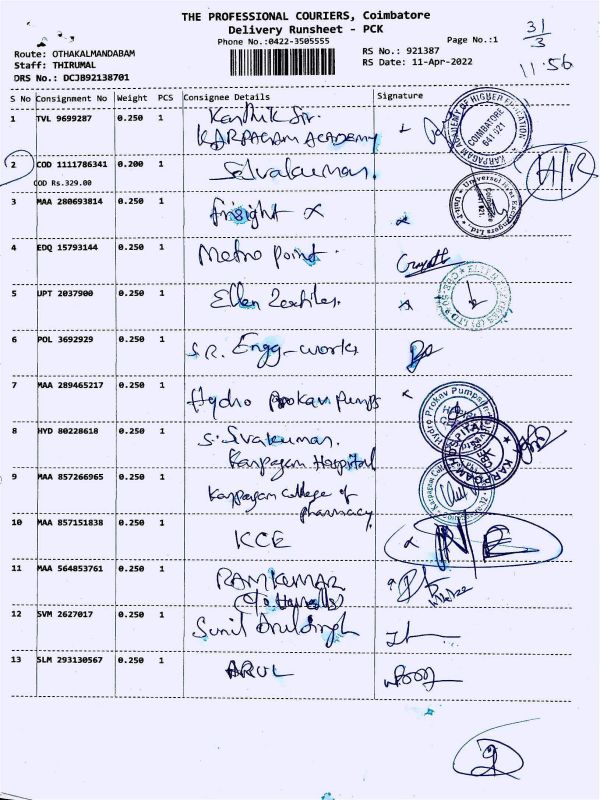 THE PROFESSIONAL COURIERS, Coimbatore
Delivery Runsheet - PCK
Phone No.:0422-3505555
Page No.:1
31/3
11.56
Route: OTHAKALMANDABAM
Staff: THIRUMAL
DRS No.: DCJB92138701
RS No.: 921387
RS Date: 11-Apr-2022
S No Consignment No Weight PCS Consignee Details Signature
1 TVL 9699287 0.250 1 Karthik Sir.
KARPAGAM ACADEMY
KARPAGAM ACADEMY OF HIGHER EDUCATION
COIMBATORE
641 021
2 COD 1111786341 0.200 1 Selvakumar.
COD Rs.329.00
H/R
3 MAA 280693814 0.250 1
Universal Heat Exchangers Ltd.
Unit-I
4 EDQ 15793144 0.250 1 Metro point.
5 UPT 2037900 0.250 1 Ellen Textiles.
6 POL 3692929 0.250 1 S.R. Engg-works
7 MAA 289465217 0.250 1 Hydro Prokav Pumps
Hydro Prokav Pumps
8 HYD 80228618 0.250 1 S. Sivakumar.
Karpagam Hospital
KARPAGAM HOSPITAL
CBE
9 MAA 857266965 0.250 1 Karpagam College of
pharmacy
Karpagam College
10 MAA 857151838 0.250 1 KCE
11 MAA 564853761 0.250 1 RAMKUMAR
12 SVM 2627017 0.250 1 Sunil
13 SLM 293130567 0.250 1 ARUL